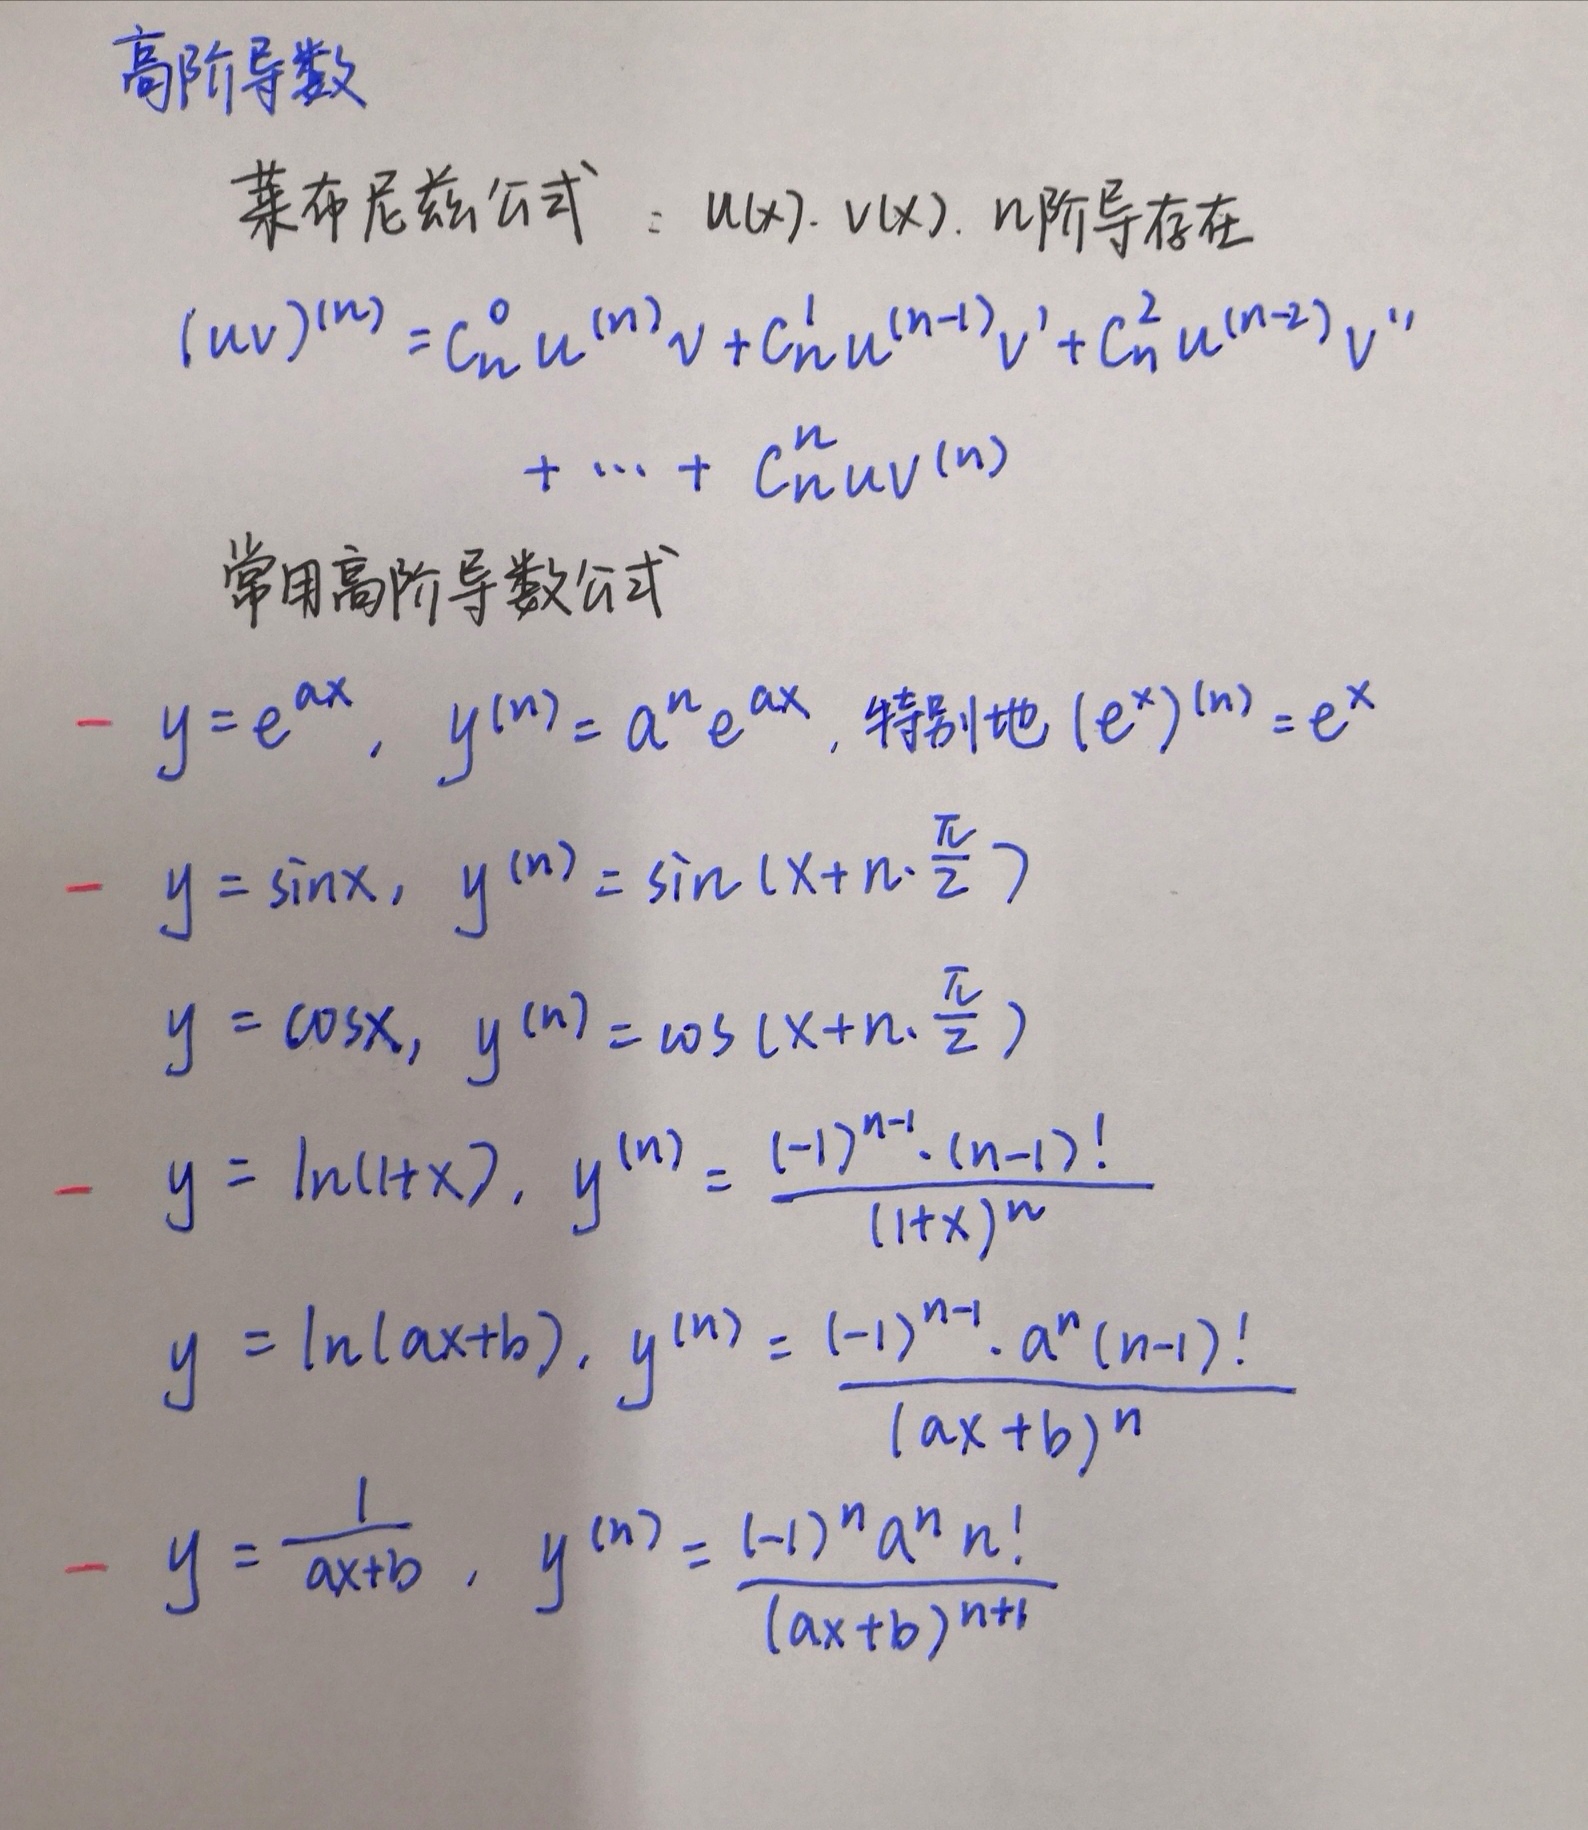 高阶导数
莱布尼兹公式：u(x). v(x). n阶导存在
(uv)^{(n)} = C_n^0 u^{(n)} v + C_n^1 u^{(n-1)} v' + C_n^2 u^{(n-2)} v''
+ … + C_n^n u v^{(n)}
常用高阶导数公式
- y = e^{ax}, y^{(n)} = a^n e^{ax}, 特别地 (e^x)^{(n)} = e^x
- y = sinx, y^{(n)} = sin(x+n·\frac{π}{2})
y = cosx, y^{(n)} = cos(x+n·\frac{π}{2})
- y = ln(1+x), y^{(n)} = \frac{(-1)^{n-1}·(n-1)!}{(1+x)^n}
y = ln(ax+b), y^{(n)} = \frac{(-1)^{n-1}·a^n(n-1)!}{(ax+b)^n}
- y = \frac{1}{ax+b}, y^{(n)} = \frac{(-1)^n a^n n!}{(ax+b)^{n+1}}